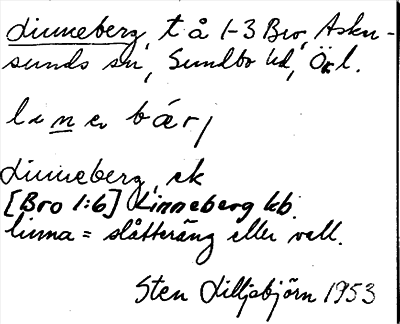 Linneberg, t å 1-3 Bro, Asker-
sunds sn, Sundbo hd, Ör l.
linebärj
Linneberg, ek
[Bro 1:6] Linneberg kb.
linna = slåtteräng eller vall.
Sten Lilljebjörn 1953